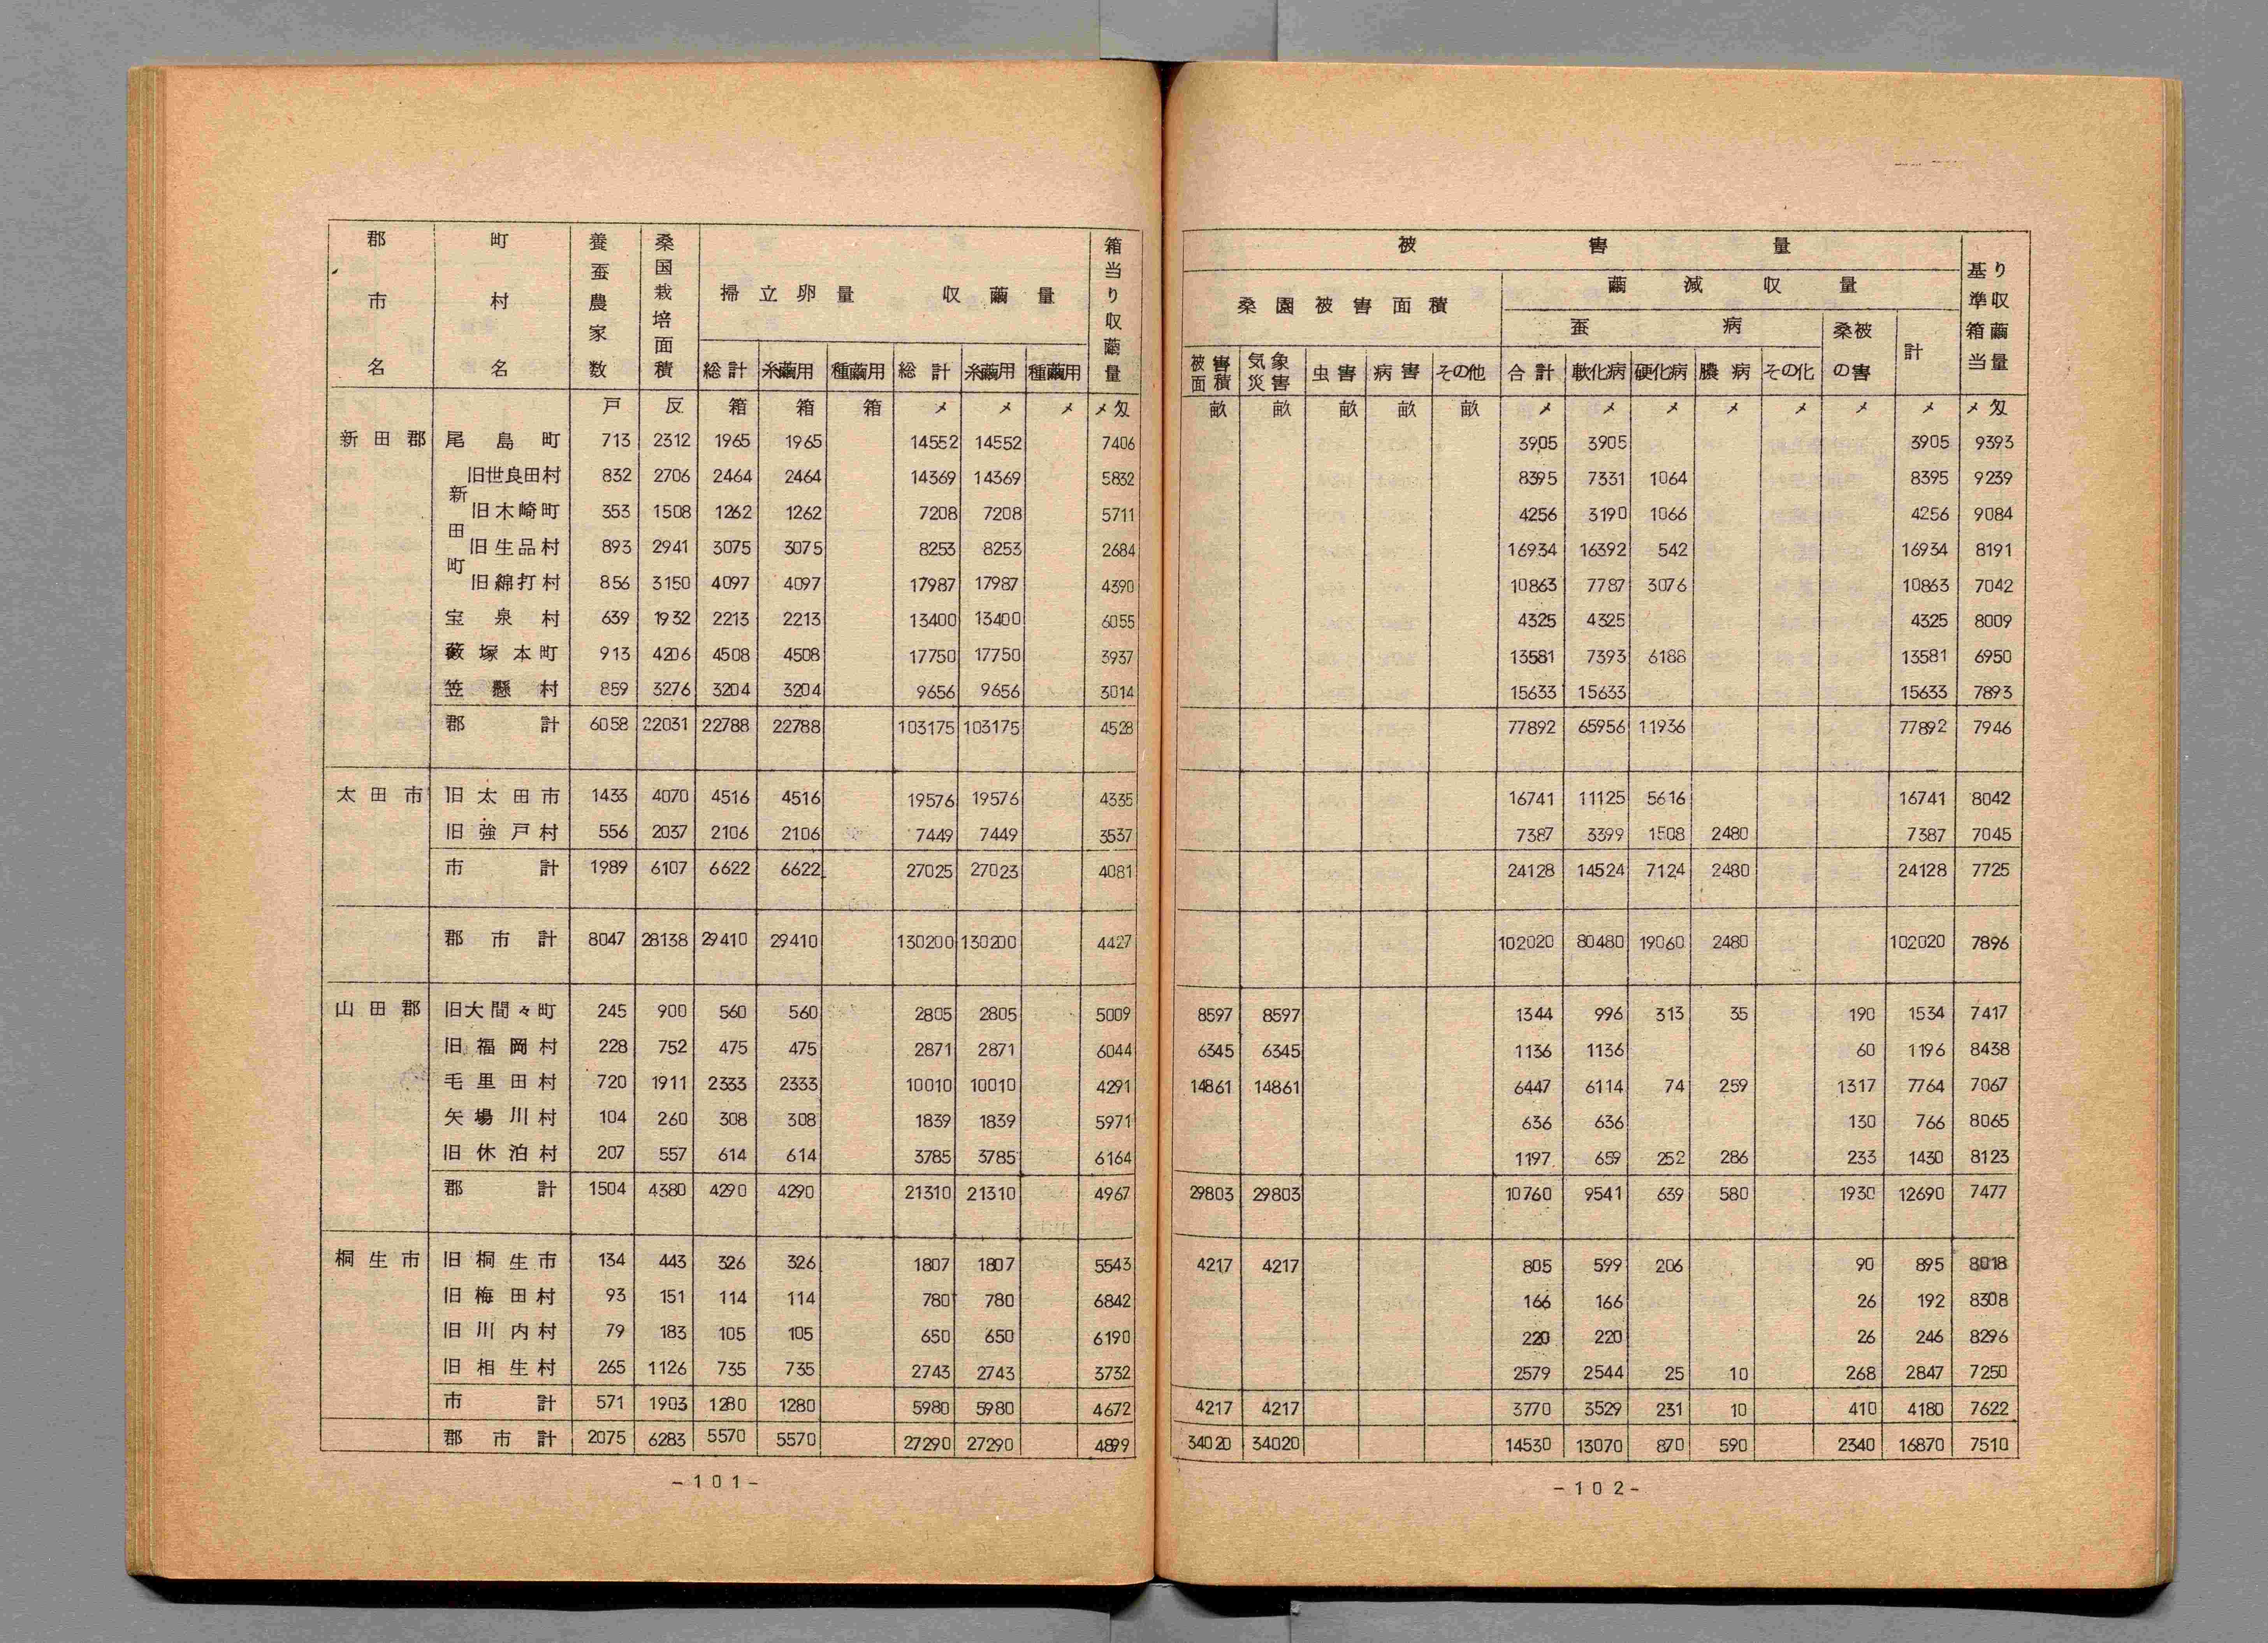 郡市名 町村名 養蚕農家数 桑国栽培面積 掃立卵量 収繭量 箱当り収繭量
総計 糸繭用 種繭用 総計 糸繭用 種繭用
戸 反 箱 箱 箱 メ メ メ メ匁
新田郡 尾島町 713 2312 1965 1965 14552 14552 7406
新田町
旧世良田村 832 2706 2464 2464 14369 14369 5832
旧木崎町 353 1508 1262 1262 7208 7208 5711
旧生品村 893 2941 3075 3075 8253 8253 2684
旧綿打村 856 3150 4097 4097 17987 17987 4390
宝泉村 639 1932 2213 2213 13400 13400 6055
藪塚本町 913 4206 4508 4508 17750 17750 3937
笠懸村 859 3276 3204 3204 9656 9656 3014
郡計 6058 22031 22788 22788 103175 103175 4528
太田市 旧太田市 1433 4070 4516 4516 19576 19576 4335
旧強戸村 556 2037 2106 2106 7449 7449 3537
市計 1989 6107 6622 6622 27025 27023 4081
郡市計 8047 28138 29410 29410 130200 130200 4427
山田郡 旧大間々町 245 900 560 560 2805 2805 5009
旧福岡村 228 752 475 475 2871 2871 6044
毛里田村 720 1911 2333 2333 10010 10010 4291
矢場川村 104 260 308 308 1839 1839 5971
旧休泊村 207 557 614 614 3785 3785 6164
郡計 1504 4380 4290 4290 21310 21310 4967
桐生市 旧桐生市 134 443 326 326 1807 1807 5543
旧梅田村 93 151 114 114 780 780 6842
旧川内村 79 183 105 105 650 650 6190
旧相生村 265 1126 735 735 2743 2743 3732
市計 571 1903 1280 1280 5980 5980 4672
郡市計 2075 6283 5570 5570 27290 27290 4899
-101-
被害量 基準箱当り収繭量
桑園被害面積 繭減収量
蚕病 桑被の害 計
被害面積 気象災害 虫害 病害 その他 合計 軟化病 硬化病 膿病 その化
畝 畝 畝 畝 畝 メ メ メ メ メ メ メ メ匁
3905 3905 3905 9393
8395 7331 1064 8395 9239
4256 3190 1066 4256 9084
16934 16392 542 16934 8191
10863 7787 3076 10863 7042
4325 4325 4325 8009
13581 7393 6188 13581 6950
15633 15633 15633 7893
77892 65956 11936 77892 7946
16741 11125 5616 16741 8042
7387 3399 1508 2480 7387 7045
24128 14524 7124 2480 24128 7725
102020 80480 19060 2480 102020 7896
8597 8597 1344 996 313 35 190 1534 7417
6345 6345 1136 1136 60 1196 8438
14861 14861 6447 6114 74 259 1317 7764 7067
636 636 130 766 8065
1197 659 252 286 233 1430 8123
29803 29803 10760 9541 639 580 1930 12690 7477
4217 4217 805 599 206 90 895 8018
166 166 26 192 8308
220 220 26 246 8296
2579 2544 25 10 268 2847 7250
4217 4217 3770 3529 231 10 410 4180 7622
34020 34020 14530 13070 870 590 2340 16870 7510
-102-